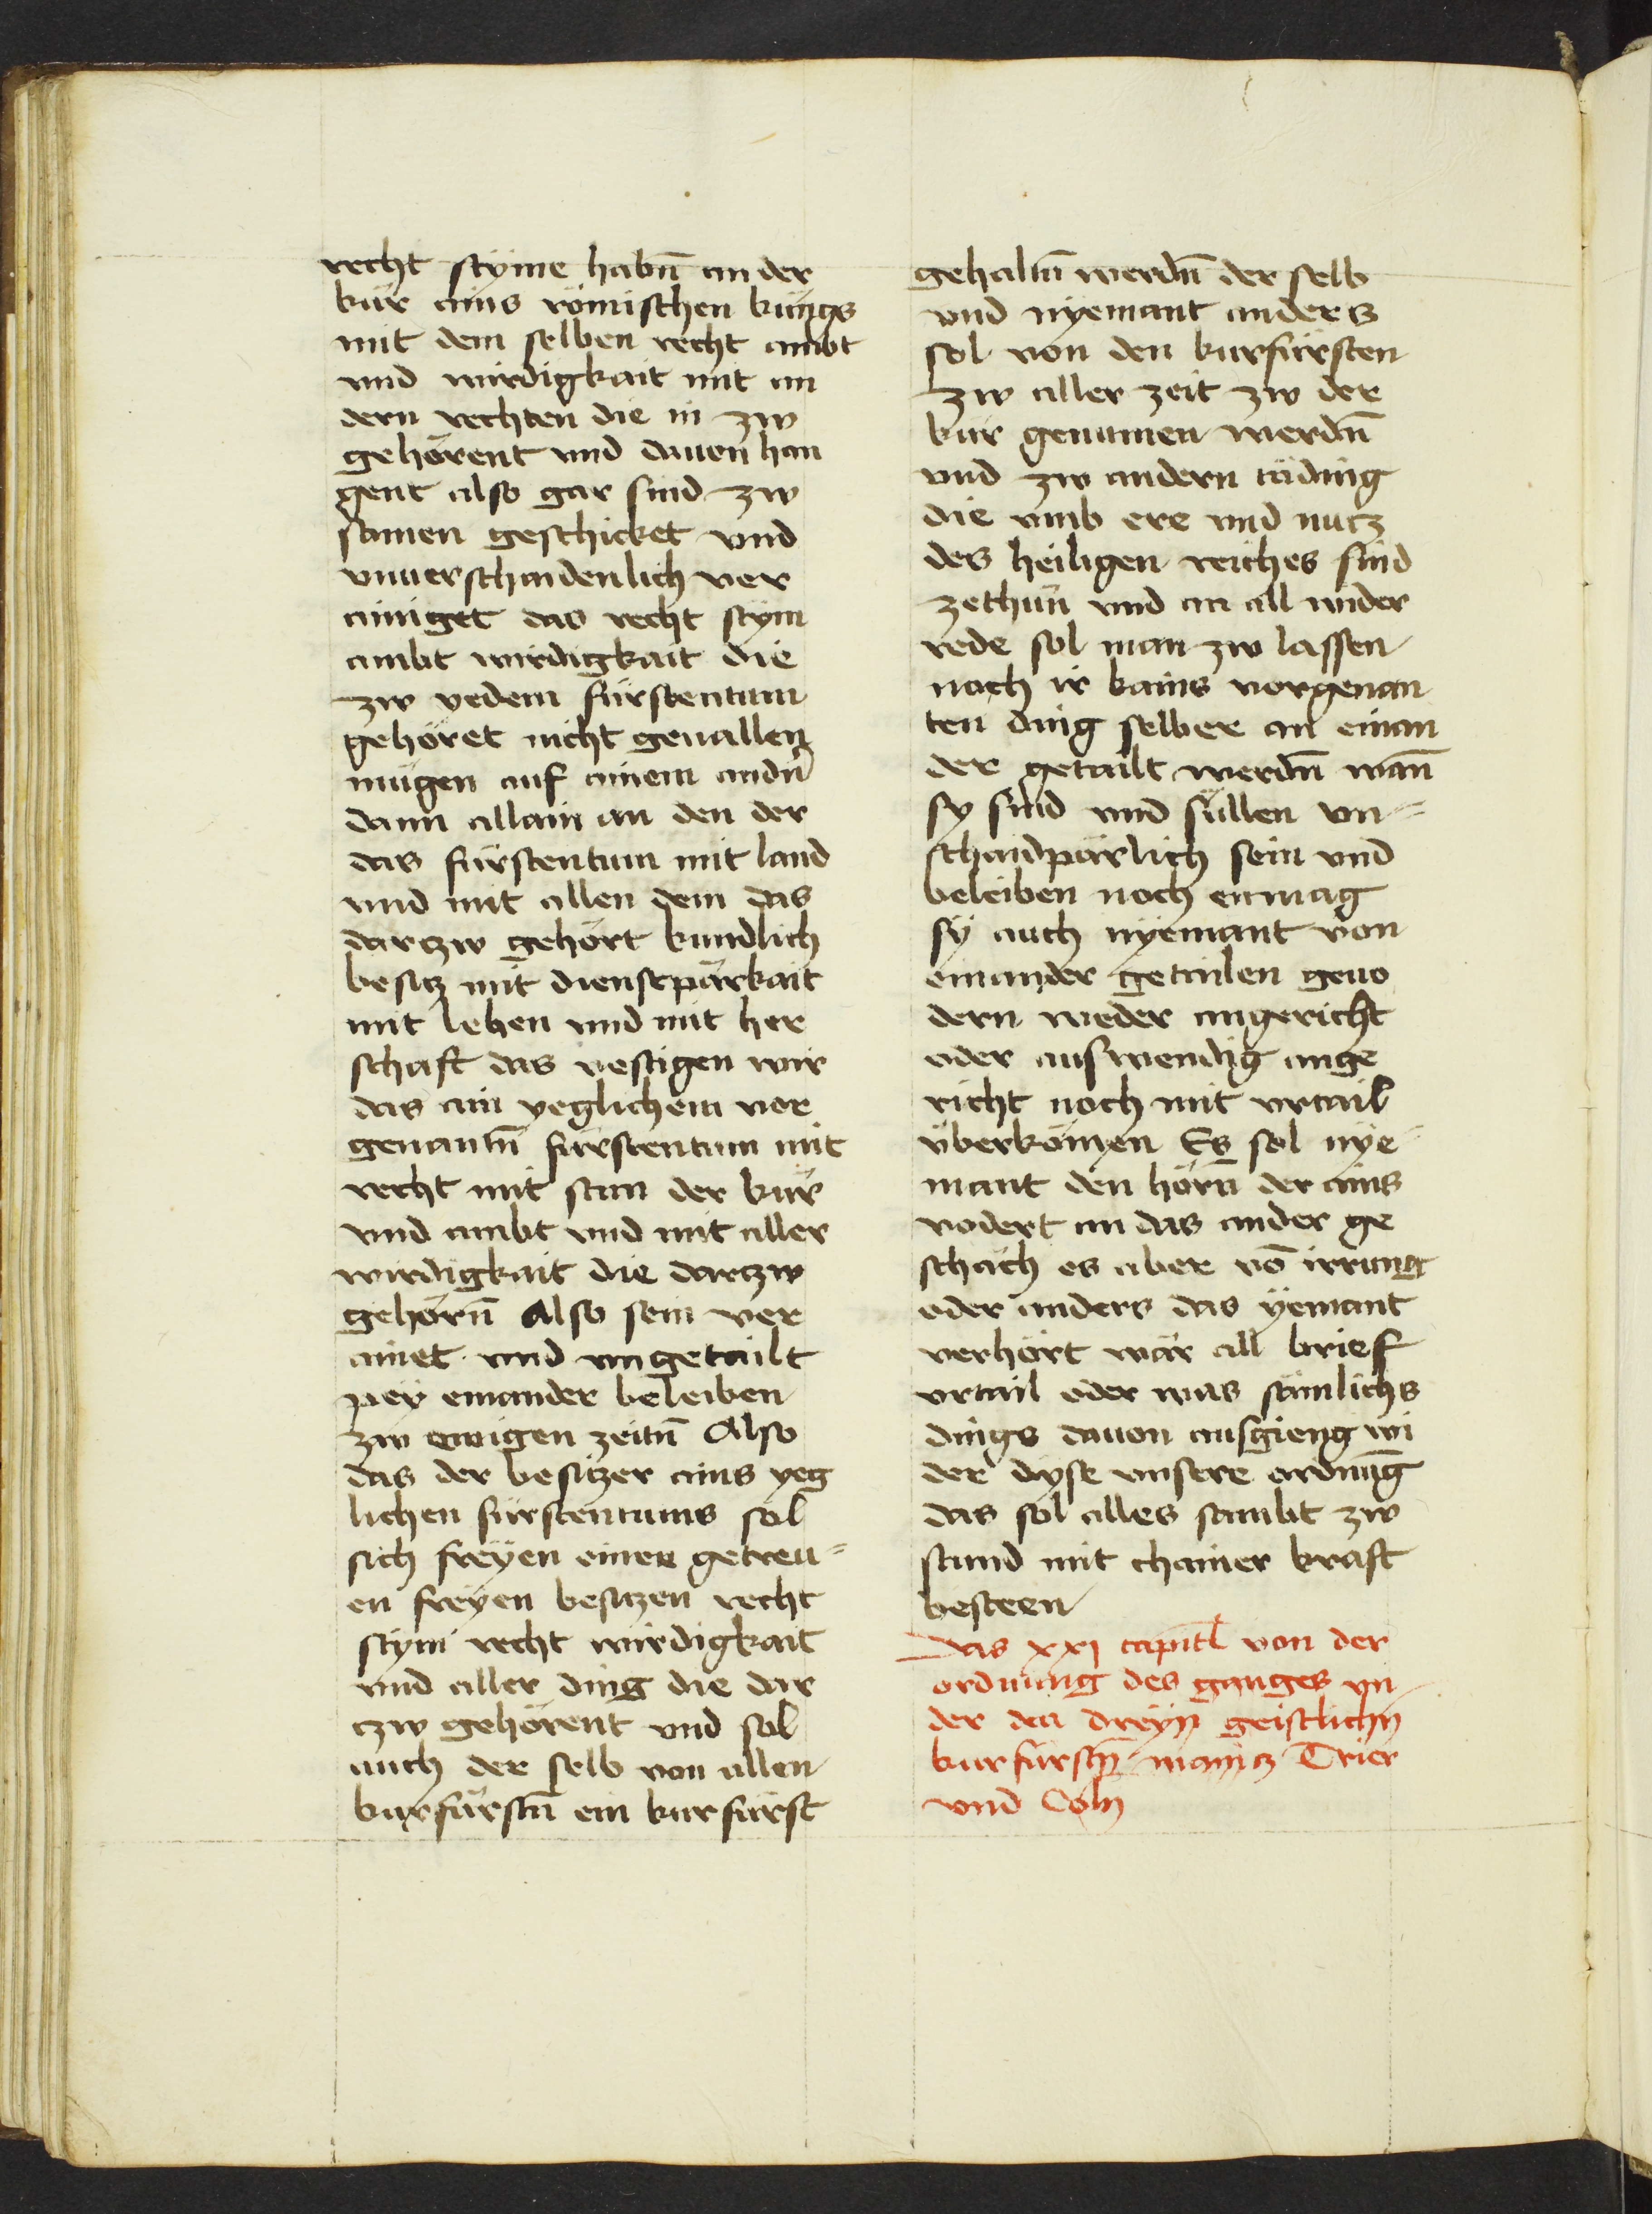 recht stÿme habn̄ an der
kür ains römischen küngs
mit dem selben recht ambt
vnd wirdigkait mit an
dern rechten die in zw
gehörent vnd dauon han
gent also gar sind zw
samen geschicket vnd
vnuerschaidenlich ver
ainiget das recht stÿm
ambt wirdigkait die
zw yedem fürstentum
gehöret nicht geuallen
mügen auf ainem andn̄
dann allain an den der
das fürstentum mit land
vnd mit allen dem das
darzw gehört kundlich
besitz mit dienstpärkait
mit lehen vnd mit her
schaft das vestigen wir
das ain yeglichem vor
genantn̄ fürstentum mit
recht mit stim der kür
vnd ambt vnd mit aller
wirdigkait die darzw
gehörn̄ Also sein ver
ainet vnd vngetailt
peÿ einander beleiben
zw ewigen zeitn̄ Also
das der besitzer ains yeg
lichen fürstentums sol
sich freÿen einer getreu=
en freÿen besitzen recht
stÿm recht wirdigkait
vnd aller ding die dar
czw gehörent vnd sol
auch der selb von allen
kurfürstn̄ ein kurfürst
gehaltn̄ werdn̄ der selb
vnd nÿemant anders
sol von den kurfürsten
zw aller zeit zw der
kür genumen werdn̄
vnd zw andern täding
die vmb ere vnd nutz
des heiligen reiches sind
zethun̄ vnd an all wider
rede sol man zw lassen
noch ir kains vorgenan
ten ding selber an einan
der getailt werdn̄ wan̄
sy sind vnd süllen vn=
schaidpärlich sein vnd
beleiben noch enmag
sÿ auch nÿemant von
einander getailen geuo
dern weder ingericht
oder auswendig inge
richt noch mit vrtail
überkömen Es sol nÿe=
mant den hörn̄ der ains
vodert an das ander ge
schäch es aber vō irrung
oder anders das ÿemant
verhört wär all brief
vrtail oder was sämlichs
dings dauon ausgieng wi
der dÿse vnsere ordnūg
das sol alles sambt zw
stund mit chainer kraft
besteen
Das xxj capitl von der
ordnung des ganges vn
der den dreÿn geistlichn
kurfürstn̄ maincz Trier
vnd Coln